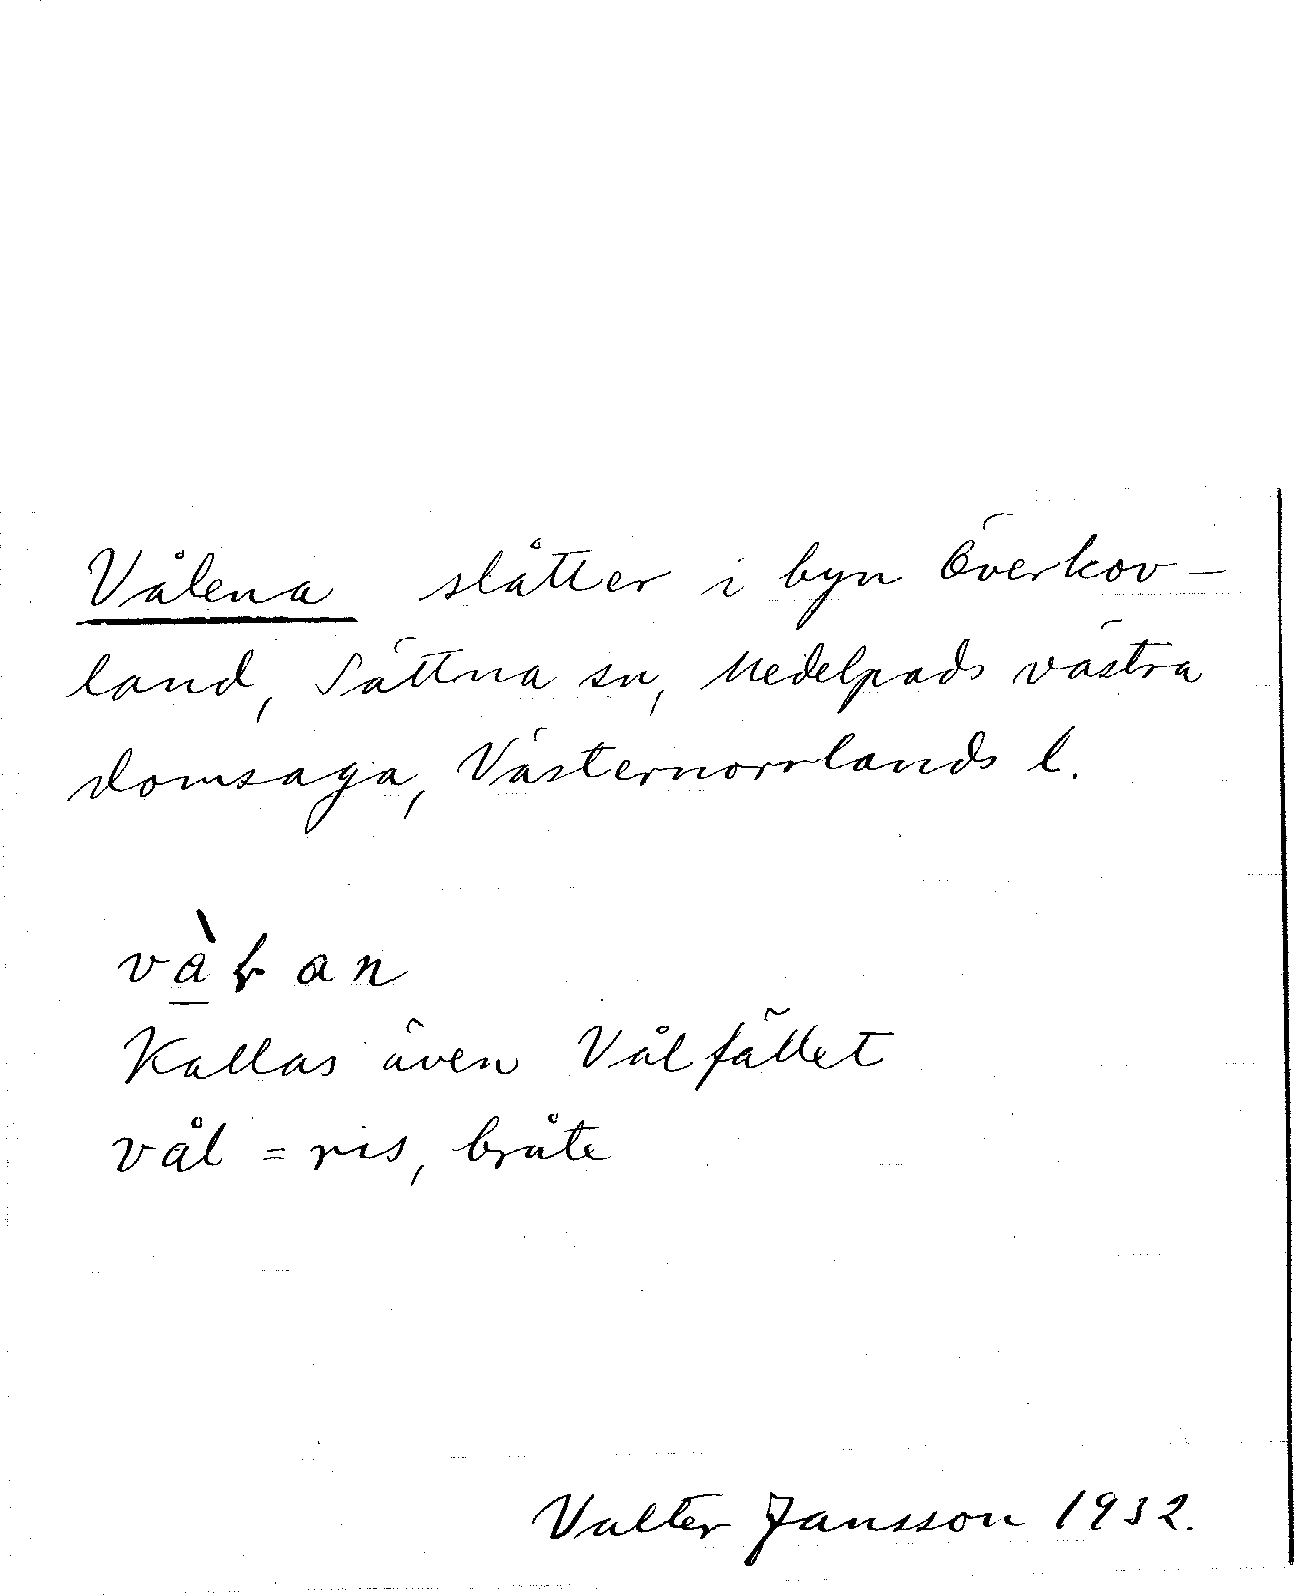 Vålena slåtter i byn Överkov-
land, Sättna sn, Medelpads västra
domsaga, Västernorrlands l.
và̱ɽan
Kallas även Vålfället
vål = ris, bråte
Valter Jansson 1932.